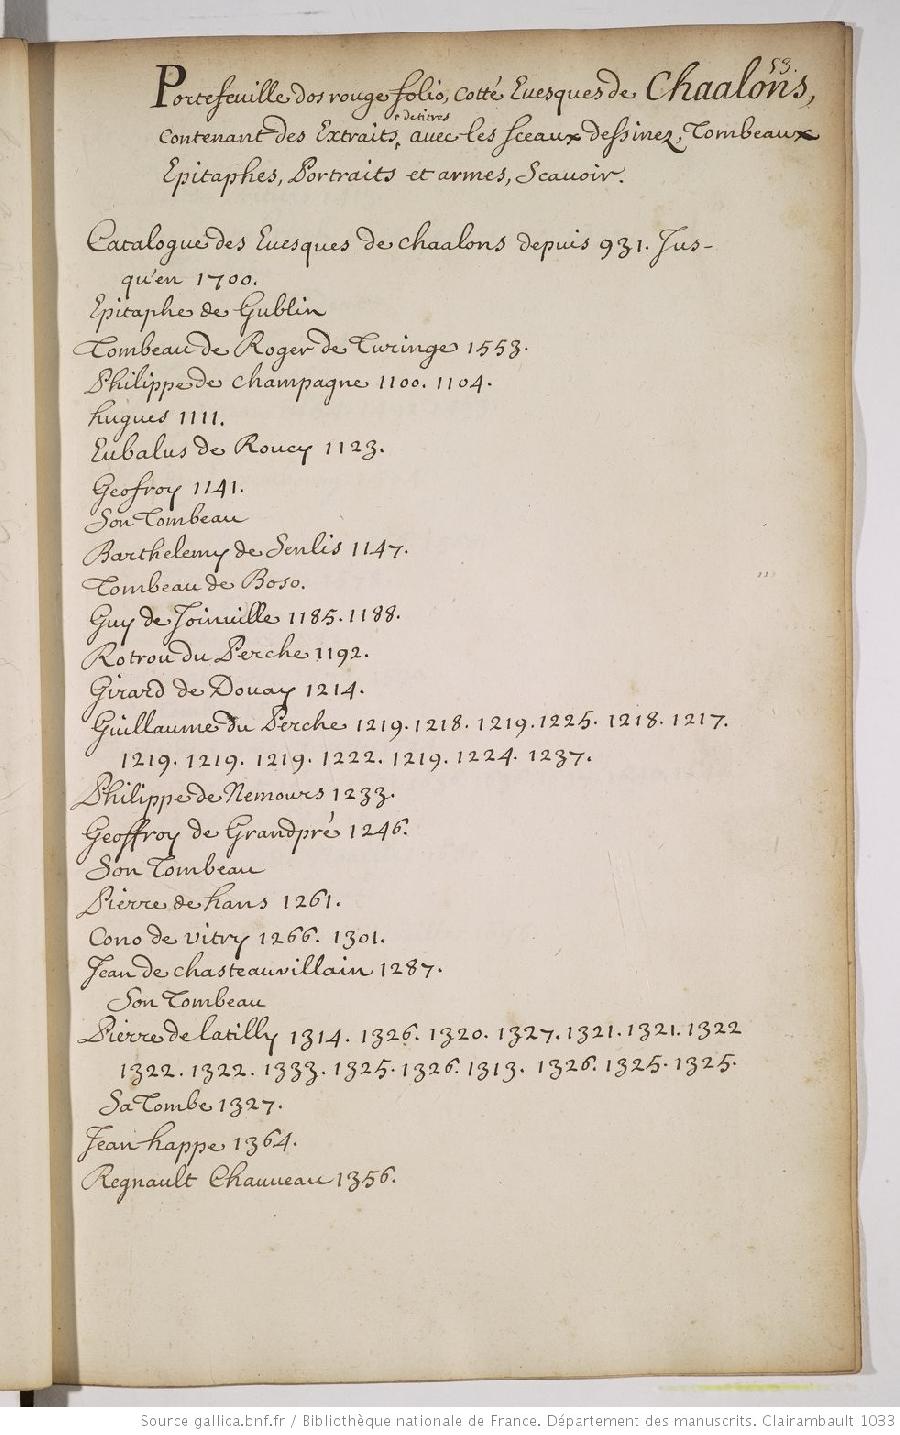 53.
Portefeuille dos rouge folio, cotté Evesques de Chaalons,
contenant des Extraits, de titres avec les sceaux dessinez, Tombeaux
Epitaphes, Portraits et armes, Scavoir.
Catalogue des Evesques de chaalons depuis 931. Jus-
qu'en 1700.
Epitaphe de Gublin
Tombeau de Roger de Turinge 1553.
Philippe de champagne 1100. 1104.
hugues 1111.
Eubalus de Roucy 1123.
Geofroy 1141.
Son Tombeau
Barthelemy de Senlis 1147.
Tombeau de Boso.
Guy de Joinville 1185. 1188.
Rotrou du Perche 1192.
Girard de Douay 1214.
Guillaume du Perche 1219. 1218. 1219. 1225. 1218. 1217.
1219. 1219. 1219. 1222. 1219. 1224. 1237.
Philippe de Nemours 1233.
Geoffroy de Grandpré 1246.
Son Tombeau
Pierre de hans 1261.
Cono de vitry 1266. 1301.
Jean de chasteauvillain 1287.
Son Tombeau
Pierre de latilly 1314. 1326. 1320. 1327. 1321. 1321. 1322
1322. 1322. 1333. 1325. 1326. 1313. 1326. 1325. 1325.
Sa Tombe 1327.
Jean happe 1364.
Regnault Chauveau 1356.
Source gallica.bnf.fr / Bibliothèque nationale de France. Département des manuscrits. Clairambault 1033